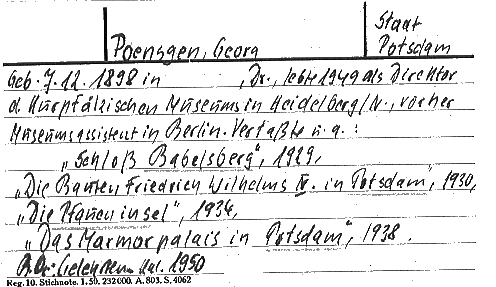 Staat
Poensgen, Georg Potsdam
Geb. 7.12.1898 in , Dr., lebte 1949 als Direktor
d. Kurpfälzischen Museums in Heidelberg/N., vorher
Museumsassistent in Berlin. Verfaßte u.a.:
„Schloß Babelsberg", 1929,
„Die Bauten Friedrich Wilhelms IV. in Potsdam", 1930,
„Die Pfaueninsel", 1934,
„Das Marmorpalais in Potsdam", 1938.
1950
Reg. 10. Stichnote. 1. 50. 232000. A. 803. S. 4062